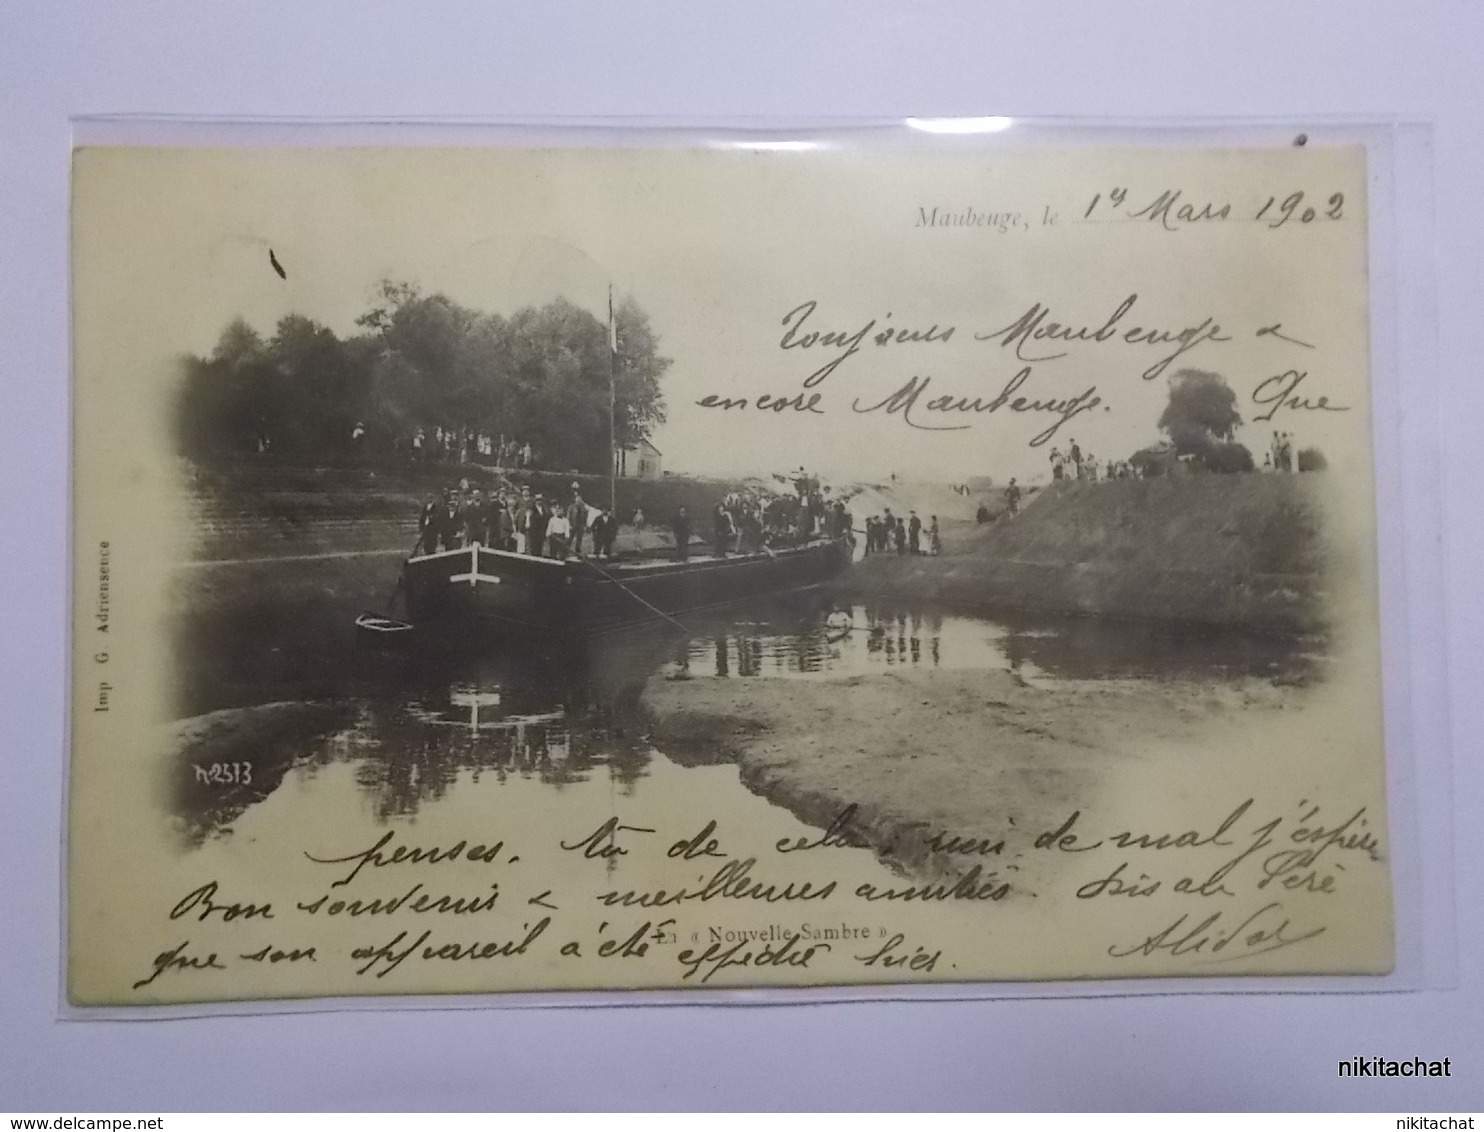 Maubeuge, le 1er Mars 1902
Toujours Maubeuge &
encore Maubeuge. Que
Imp G. Adriensence
n.2513
penses. tu de cela, rien de mal j'espère
Bon souvenir & meilleures amitiés. Dis au Père
La « Nouvelle Sambre »
que son appareil a été expédié hier.
Alidor
nikitachat
delcampe.net
nikitachat